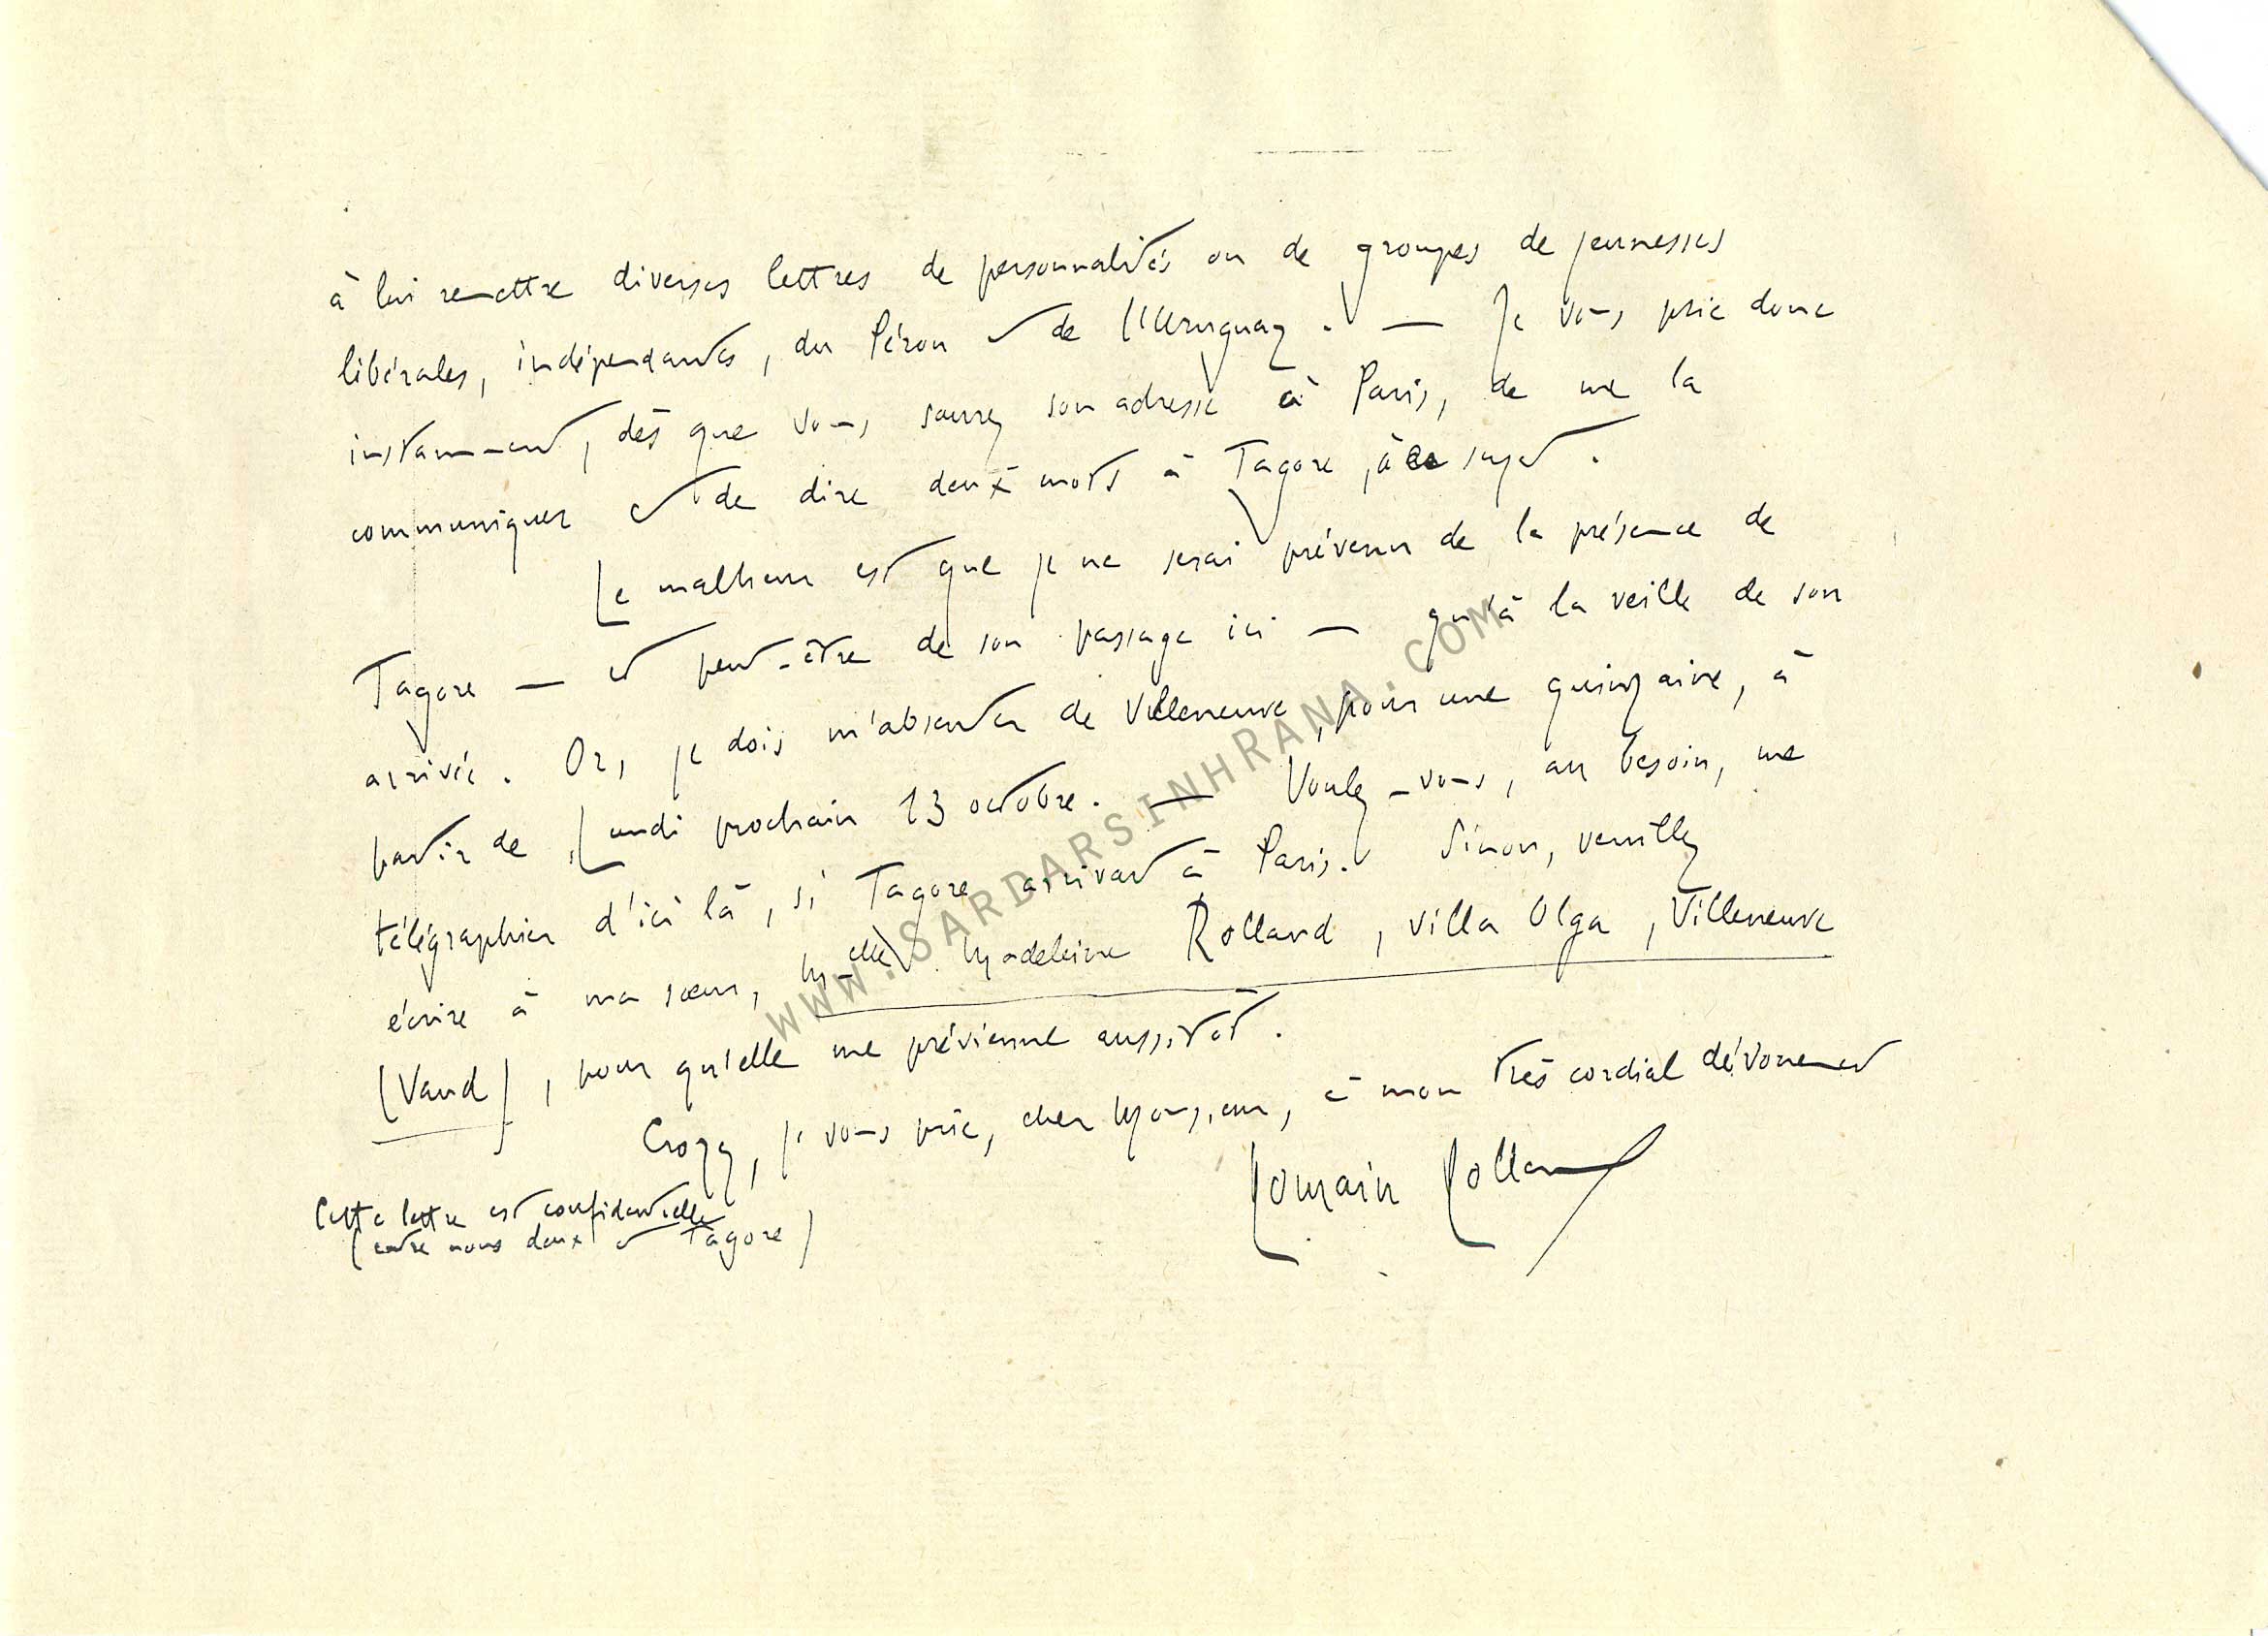 à lui remettre diverses lettres de personnalités ou de groupes de jeunesses
libérales, indépendantes, du Pérou et de l'Uruguay. — Je vous prie donc
instamment, dès que vous saurez son adresse à Paris, de me la
communiquer et de dire deux mots à Tagore, à ce sujet.
Le malheur est que je ne serai prévenu de la présence de
Tagore — et peut-être de son passage ici — qu'à la veille de son
arrivée. Or, je dois m'absenter de Villeneuve, pour une quinzaine, à
partir de Lundi prochain 13 octobre. — Voulez-vous, au besoin, me
télégraphier d'ici là, si Tagore arrivait à Paris. Sinon, veuillez
écrire à ma sœur, Melle Madeleine Rolland, villa Olga, Villeneuve
(Vaud), pour qu'elle me prévienne aussitôt.
Croyez, je vous prie, cher Monsieur, à mon très cordial dévouement
Romain Rolland
Cette lettre est confidentielle
(entre nous deux et Tagore)
WWW.SARDARSINHRANA.COM